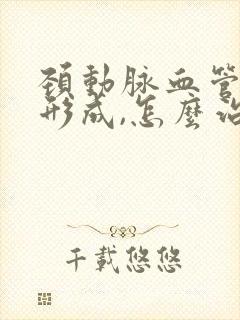 頚動脉血管
形成,怎麼治
千載悠悠